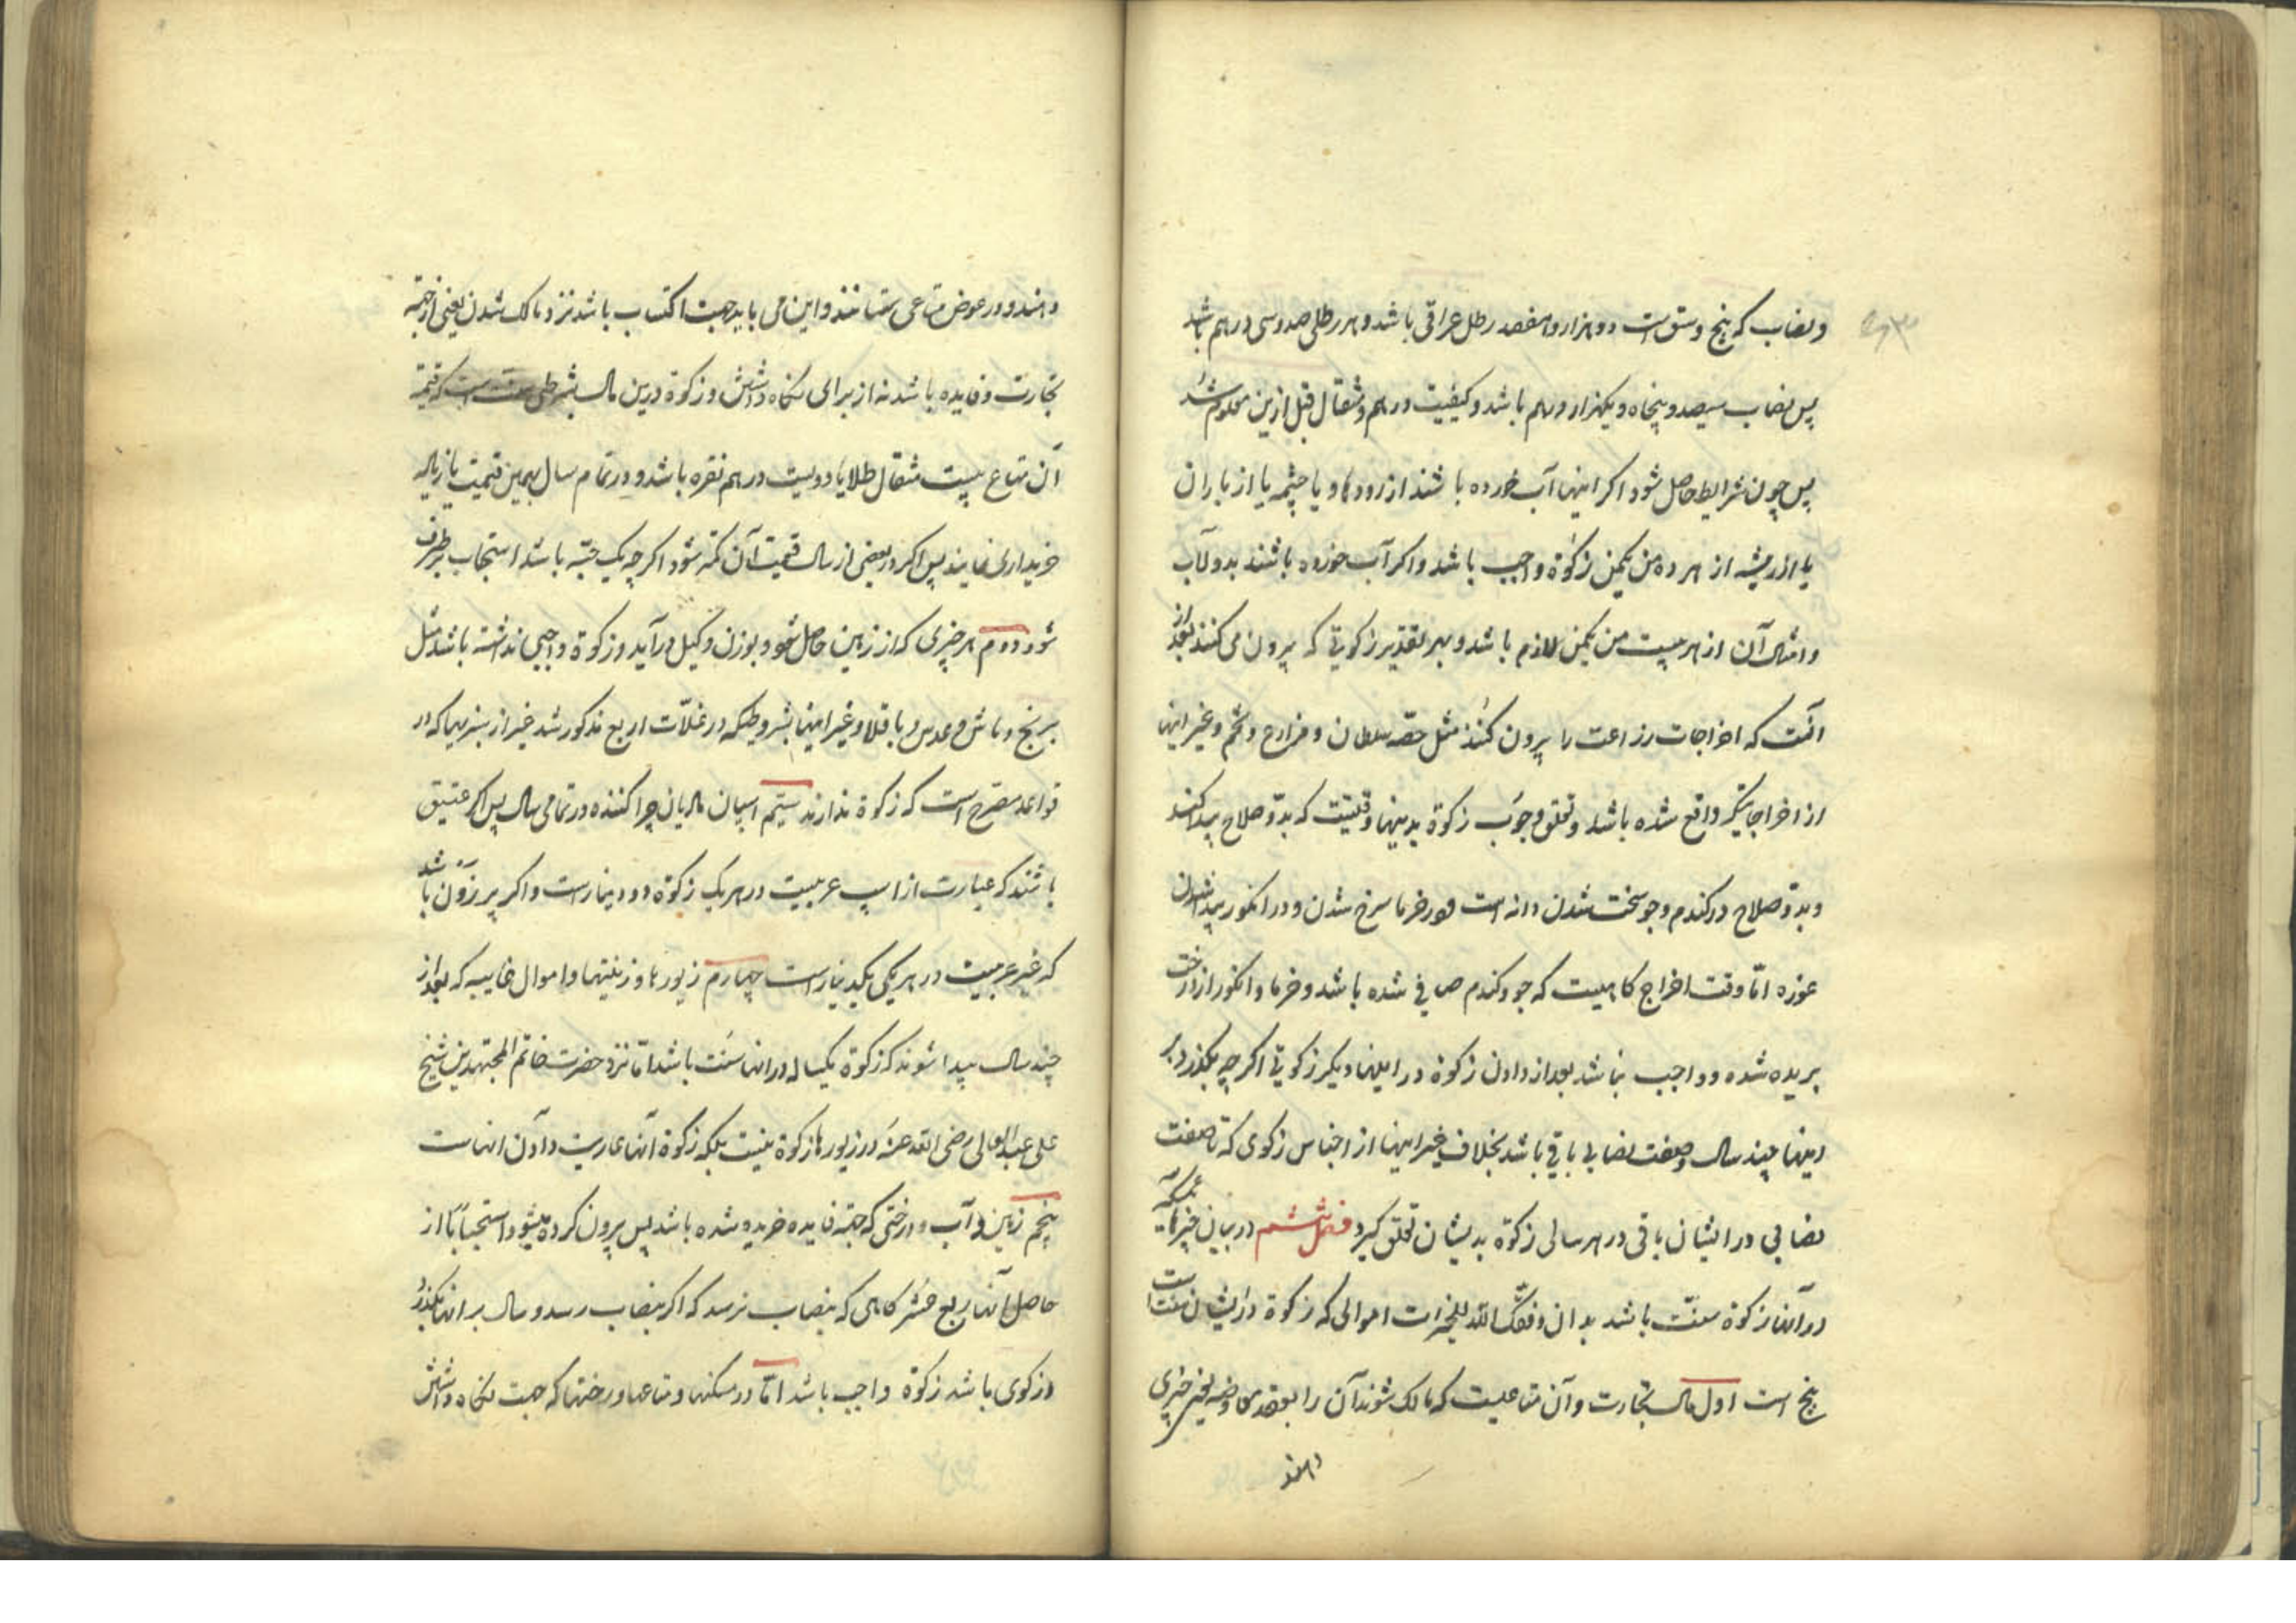 ونصاب که پنج وسق است دو هزار و هفصد رطل عراقی باشد و هر رطلی صد و سی درهم باشد
پس نصاب سیصد و پنجاه و یکهزار درهم باشد و کیفیت درهم و مثقال قبل ازین معلوم شد
پس چون شرایط حاصل شود اکر اینها آب خورده باشند از رودها و یا چشمه یا از باران
یا از ریشه از هر ده من یکمن زکوة واجب باشد و اکر آب خورده باشند بدولاب
و امثال آن از هر بیست من یکمن لازم باشد و بهر تقدیر زکوتی که بیرون می کنند بعد از
آنست که اخراجات زراعت را بیرون کنند مثل حصّه سلطان و مزارع و تخم و غیر اینها
از اخراجاتیکه واقع شده باشد و تعلق وجوب زکوة بدینها وقتیست که بدوّ صلاح پیدا کنند
و بدوّ صلاح در کندم و جو سخت شدن دانه است و در خرما سرخ شدن و در انکور پیدا شدن
غوره امّا وقت اخراج کاهیست که جو و کندم صافی شده باشد و خرما و انکور از درخت
بریده شده و واجب نباشد بعد از دادن زکوة در اینها دیکر زکوتی اکر چه بکذرد بر
اینها چند سال و صفت نصابی باقی باشد بخلاف غیر اینها از اجناس زکوی که تا صفت
نصابی در ایشان باقی در هر سالی زکوة بدیشان تعلق کیرد فصل ششم در بیان چیزهایی که
در آنها زکوة سنّت باشد بدان وفقک الله للخیرات اموالی که زکوة در ایشان سنت است
پنج است اول مال تجارت و آن متاعیست که مالک شوند آن را بعقد معاوضه یعنی چیزی
دهند
دهند و در عوض متاعی ستانند و این می باید جهت اکتساب باشد نزد مالک شدن یعنی از جهة
تجارت و فایده باشد نه از برای نکاه داشتن و زکوة درین مال بشرطی سنت است که قیمة
آن متاع بیست مثقال طلا یا دویست درهم نقره باشد و در تمام سال بهمین قیمت یا زیاله
خریداری نمایند پس اکر در بعضی از سال قیمت آن کمتر شود اکر چه یک حبّه باشد استحباب برطرف
شود دوم هر چیزی که از زمین حاصل شود و بوزن و کیل درآید و زکوة واجبی نداشته باشد مثل
برنج و ماش و عدس و باقلا و غیر اینها بشروطیکه در غلّات اربع مذکور شد غیر از سبزیها که در
قواعد مصرّح است که زکوة ندارند سیّم اسپان مادیان چرا کننده در تمامی سال پس اکر عتیق
باشند که عبارت از اسپ عربیست در هر یک زکوة دو دینار است و اکر برزون باشد
که غیر عربیست در هر یکی یکدینار است چهارم زیورها و زینتها و اموال غایبه که بعد از
چند سال پیدا شوند که زکوة یکساله در انها سنت باشد امّا نزد حضرت خاتم المجتهدین شیخ
علی عبدالعالی رضی الله عنه در زیورها زکوة نیست بلکه زکوة آنها عاریت دادن انهاست
پنجم زمین و آب و درختی که جهة فایده خریده شده باشد پس بیرون کرده میشود استحباباً از
حاصل آنها ربع عشر کاهی که بنصاب نرسد که اکر بنصاب رسد و سال بر انها بکذرد
و زکوی باشد زکوة واجب باشد امّا در مسکنها و متاعها و رختها که جهت نکاه داشتن